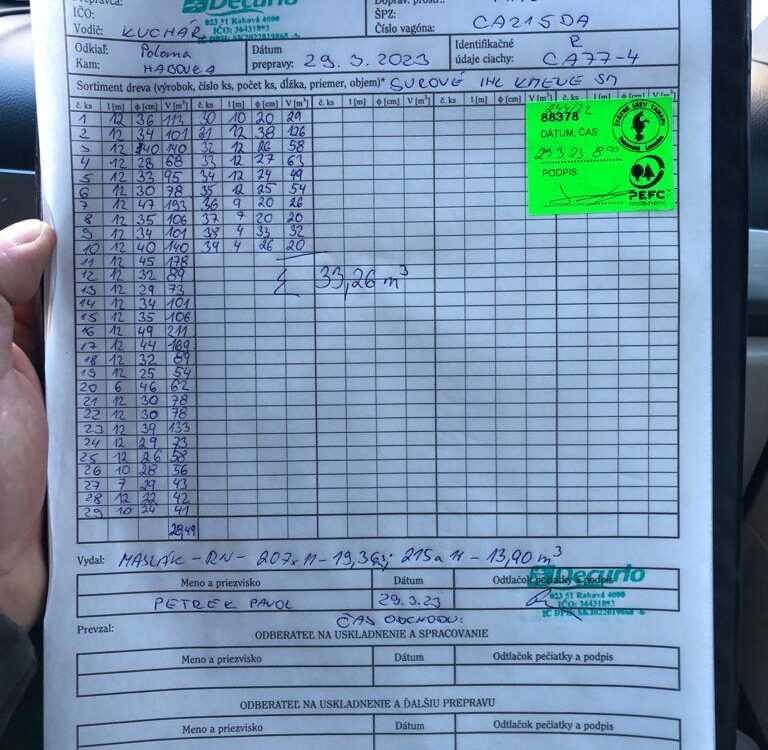 Prepravca: Decurlo Doprav. prostr.:
IČO: 023 51 Raková 4000 ŠPZ:
IČO: 36431893
Vodič: KUCHÁR IČ DPH: SK2022019868 Číslo vagóna: CA215DA
Odkiaľ: Poloma Dátum Identifikačné R
Kam: HABOVKA prepravy: 29.3.2023 údaje ciachy: CA77-4
Sortiment dreva (výrobok, číslo ks, počet ks, dĺžka, priemer, objem)* SUROVÉ IHL KMENE SM
č. ks l [m] ϕ [cm] V [m³] č. ks l [m] ϕ [cm] V [m³] č. ks l [m] ϕ [cm] V [m³] č. ks l [m] ϕ [cm] V [m³] č. ks l [m] ϕ [cm] V [m³]
1 12 36 113 30 10 20 29
2 12 34 101 31 12 38 126
3 12 40 140 32 12 26 58
4 12 28 68 33 12 27 63
5 12 33 95 34 12 24 49
6 12 30 78 35 12 25 54
7 12 47 193 36 9 20 26
8 12 35 106 37 7 20 20
9 12 34 101 38 4 33 32
10 12 40 140 39 4 26 20
11 12 45 178
12 12 32 89
13 12 29 73
14 12 34 101
15 12 35 106
16 12 49 211
17 12 44 169
18 12 32 89
19 12 25 54
20 6 46 62
21 12 30 78
22 12 30 78
23 12 39 133
24 12 29 73
25 12 26 58
26 10 28 56
27 7 29 43
28 12 22 42
29 10 24 41
28,49
Σ 33,26 m³
88378
DÁTUM, ČAS:
29.3.23 8⁰⁰
PODPIS:
ŠTÁTNE LESY TANAPU
Tatranská Lomnica
PEFC
Vydal: MASLÁK - RN - 207x11 - 19,36; 215a 11 - 13,90 m³
Meno a priezvisko Dátum Odtlačok pečiatky a podpis
PETREK PAVOL 29.3.23
Decurlo
023 51 Raková 4000
IČO: 36431893
IČ DPH: SK2022019868
ČAS ODCHODU:
Prevzal:
ODBERATEĽ NA USKLADNENIE A SPRACOVANIE
Meno a priezvisko Dátum Odtlačok pečiatky a podpis
ODBERATEĽ NA USKLADNENIE A ĎALŠIU PREPRAVU
Meno a priezvisko Dátum Odtlačok pečiatky a podpis